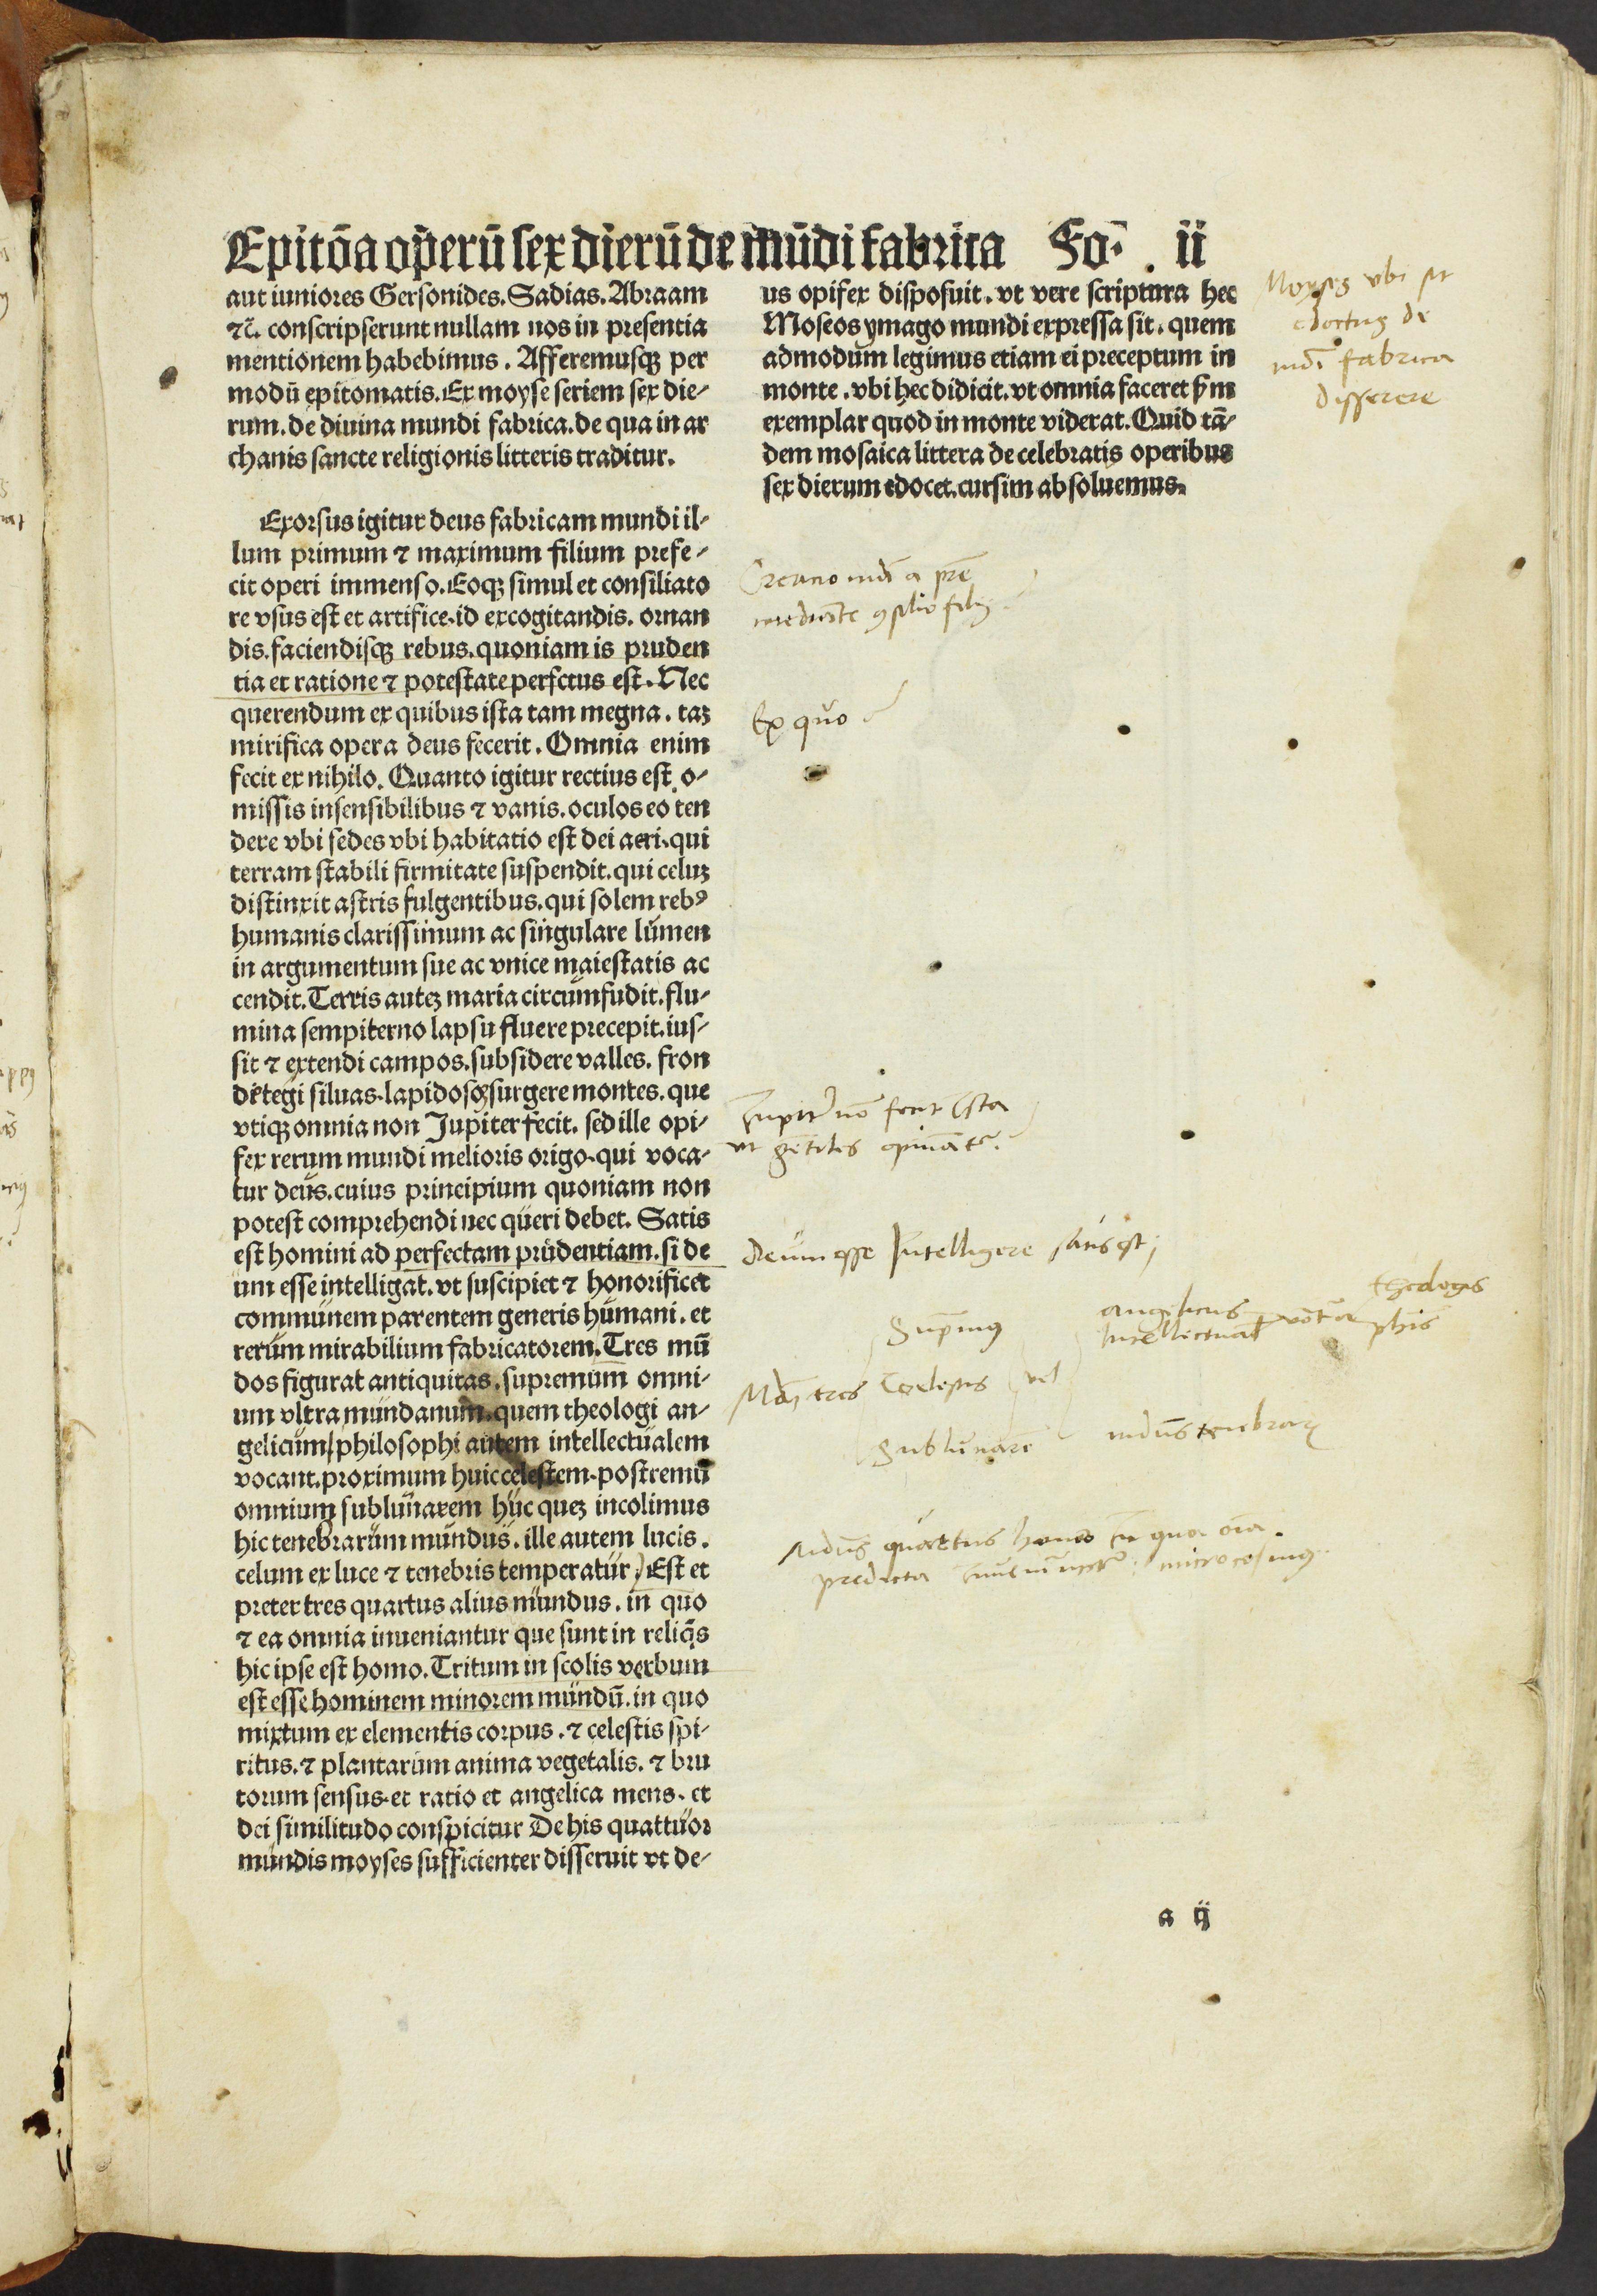 Epitōa oꝑerū ſex dierū de mūdi fabrica Fo. ii
aut iuniores Gerſonides. Sadias. Abraam
⁊c̃. conſcripſerunt nullam nos in preſentia
mentionem habebimus. Afferemuſqꝫ per
modū epitomatis. Ex moyſe ſeriem ſex die⸗
rum. de diuina mundi fabrica. de qua in ar
chanis ſancte religionis litteris traditur.
Exorſus igitur deus fabricam mundi il⸗
lum primum ⁊ maximum filium prefe⸗
cit operi immenſo. Eoqꝫ ſimul et conſiliato
re vſus eſt et artifice. id excogitandis. ornan
dis. faciendiſqꝫ rebus. quoniam is pruden
tia et ratione ⁊ poteſtate perfctus eſt. Nec
querendum ex quibus iſta tam megna. taꝫ
mirifica opera deus fecerit. Omnia enim
fecit ex nihilo. Quanto igitur rectius eſt o⸗
miſſis inſenſibilibus ⁊ vanis. oculos eo ten
dere vbi ſedes vbi habitatio eſt dei aeri. qui
terram ſtabili firmitate ſuſpendit. qui celuꝫ
diſtinxit aſtris fulgentibus. qui ſolem rebꝰ
humanis clariſſimum ac ſingulare lumen
in argumentum ſue ac vnice maieſtatis ac
cendit. Terris auteꝫ maria circumfudit. flu⸗
mina ſempiterno lapſu fluere precepit. iuſ⸗
ſit ⁊ extendi campos. ſubſidere valles. fron
dētegi ſiluas. lapidoſoſ ſurgere montes. que
vtiqꝫ omnia non Jupiter fecit. ſed ille opi⸗
fex rerum mundi melioris origo. qui voca⸗
tur deus. cuius principium quoniam non
poteſt comprehendi nec queri debet. Satis
eſt homini ad perfectam prudentiam. ſi de
um eſſe intelligat. vt ſuſcipiet ⁊ honorificet
communem parentem generis humani. et
rerum mirabilium fabricatorem. Tres mū
dos figurat antiquitas. ſupremum omni⸗
um vltra mundanum. quem theologi an⸗
gelicum/ philoſophi autem intellectualem
vocant. proximum huic celeſtem. poſtremū
omnium ſublunarem hūc queꝫ incolimus
hic tenebrarum mundus. ille autem lucis.
celum ex luce ⁊ tenebris temperatur. Eſt et
preter tres quartus alius mundus. in quo
⁊ ea omnia inueniantur que ſunt in reliq̄s
hic ipſe eſt homo. Tritum in ſcolis verbum
eſt eſſe hominem minorem mundū. in quo
mixtum ex elementis corpus. ⁊ celeſtis ſpi⸗
ritus. ⁊ plantarum anima vegetalis. ⁊ bru
torum ſenſus. et ratio et angelica mens. et
dei ſimilitudo conſpicitur De his quattuor
mundis moyſes ſufficienter diſſeruit vt de⸗
us opifex diſpoſuit. vt vere ſcriptura hec
Moſeos ymago mundi expreſſa ſit. quem
admodum legimus etiam ei preceptum in
monte. vbi hec didicit. vt omnia faceret ẜm
exemplar quod in monte viderat. Quid tā⸗
dem moſaica littera de celebratis operibus
ſex dierum edocet. curſim abſoluemus.
Moyses vbi sit
edoctus de
mūdi fabrica
disserere
Creatio mūdi a p̄re
mediāte ꝯsilio filij
Ex quo
Iupiter nō fecit ista
vt gētiles opinātr̄
Deum esse Intelligere satis est;
Supmus
angelicus
Intellectual
theologis
phis
tres Coelestis vel
Sublunare
mdūs tenebraꝝ
mdūs quartus homo in quo oīa
predicta inueniuntr̄ microcosmus
a ij